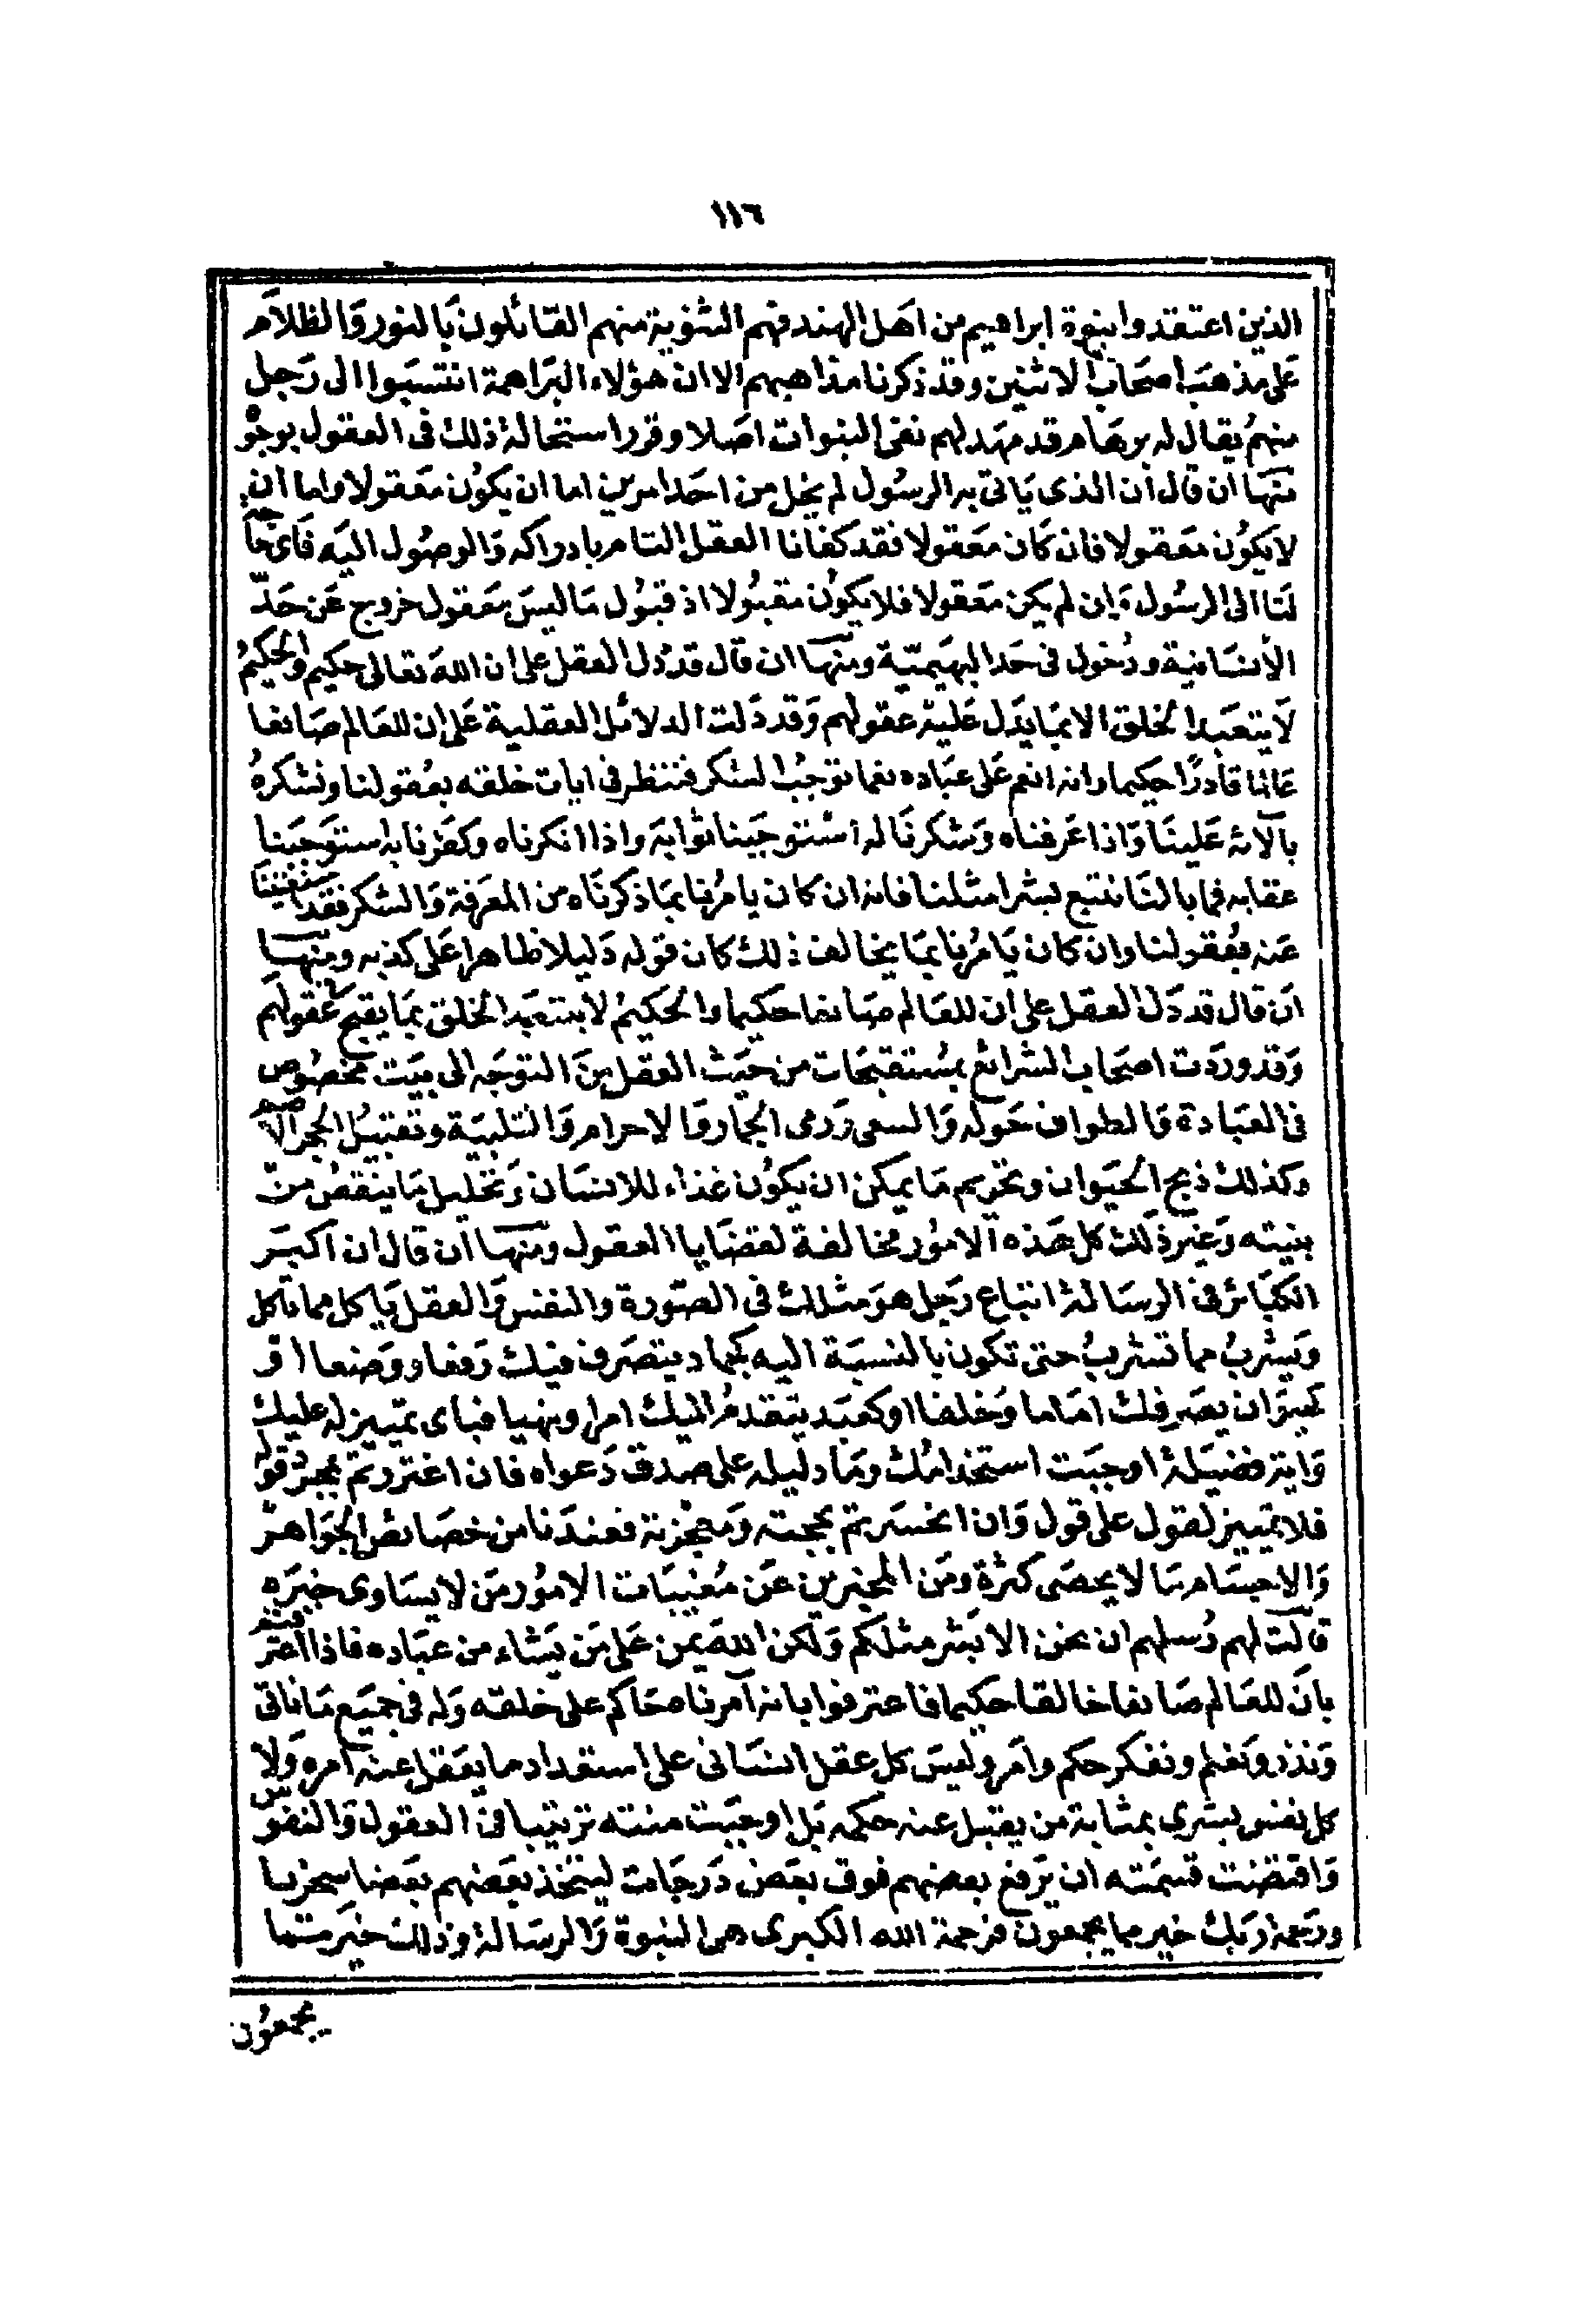 ١١٦
الذين اعتقدوا بنبوة ابراهيم من اهل الهند فهم الثنوية منهم القائلون بالنور والظلام
على مذهب اصحاب الاثنين وقد ذكرنا مذاهبهم الا ان هؤلاء البراهمة انتسبوا الى رجل
منهم يقال له برهام قد مهد لهم نفى النبوات اصلا وقرر استحالة ذلك فى العقول بوجوه
منها ان قال ان الذى ياتى به الرسول لم يخل من احد امرين اما ان يكون معقولا واما ان
لا يكون معقولا فان كان معقولا فقد كفانا العقل التام بادراكه والوصول اليه فاى حاجة
لنا الى الرسول وان لم يكن معقولا فلا يكون مقبولا اذ قبول ما ليس بمعقول خروج عن حدّ
الانسانية ودخول فى حد البهيمية ومنها ان قال قد دل العقل على ان الله تعالى حكيم والحكيم
لا يتعبد الخلق الا بما يدل عليه عقولهم وقد دلت الدلائل العقلية على ان للعالم صانعا
عالما قادرا حكيما وانه انعم على عباده نعما توجب الشكر فننظر فى ايات خلقه بعقولنا ونشكره
بآلائه علينا واذا عرفناه وشكرنا له استوجبنا ثوابه واذا انكرناه وكفرنا به استوجبنا
عقابه فما بالنا نتبع بشرا مثلنا فانه ان كان يامرنا بما ذكرناه من المعرفة والشكر فقد استغنينا
عنه بعقولنا وان كان يامرنا بما يخالف ذلك كان قوله دليلا ظاهرا على كذبه ومنها
ان قال قد دل العقل على ان للعالم صانعا حكيما والحكيم لا يتعبد الخلق بما يقبح فى عقولهم
وقد وردت اصحاب الشرائع بمستقبحات من حيث العقل من التوجه الى بيت مخصوص
فى العبادة والطواف حوله والسعى ورمى الجمار والاحرام والتلبية وتقبيل الحجر الاصم
وكذلك ذبح الحيوان وتحريم ما يمكن ان يكون غذاء للانسان وتحليل ما ينقص من
بنيته وغير ذلك كل هذه الامور مخالفة لقضايا العقول ومنها ان قال ان اكبر
الكبائر فى الرسالة اتباع رجل هو مثلك فى الصورة والنفس والعقل ياكل مما تاكل
ويشرب مما تشرب حتى تكون بالنسبة اليه كجماد يتصرف فيك رفعا ووضعا او
كحيوان يصرفك اماما وخلفا او كعبد يتقدم اليك امرا ونهيا فباى تمييز له عليك
واية فضيلة اوجبت استخدامك وما دليله على صدق دعواه فان اغتررتم بمجرد قوله
فلا تمييز لقول على قول وان انحسرتم بحجته ومعجزته فعندنا من خصائص الجواهر
والاجسام ما لا يحصى كثرة ومن المخبرين عن مغيبات الامور من لا يساوى خبره
قالت لهم رسلهم ان نحن الا بشر مثلكم ولكن الله يمن على من يشاء من عباده فاذا اعترفتم
بان للعالم صانعا خالقا حكيما فاعترفوا بانه آمر ناه حاكم على خلقه وله فى جميع ما ناتى
ونذر ونعلم ونفكر حكم وامر وليس كل عقل انسانى على استعداد ما يعقل عنه امره ولا
كل نفس بشرى بمثابة من يقبل عنه حكمه بل اوجبت منته ترتيبا فى العقول والنفوس
واقتضت قسمته ان يرفع بعضهم فوق بعض درجات ليتخذ بعضهم بعضا سخريا
ورحمة ربك خير مما يجمعون فرحمة الله الكبرى هى النبوة والرسالة وذلك خير مما
يجمعون